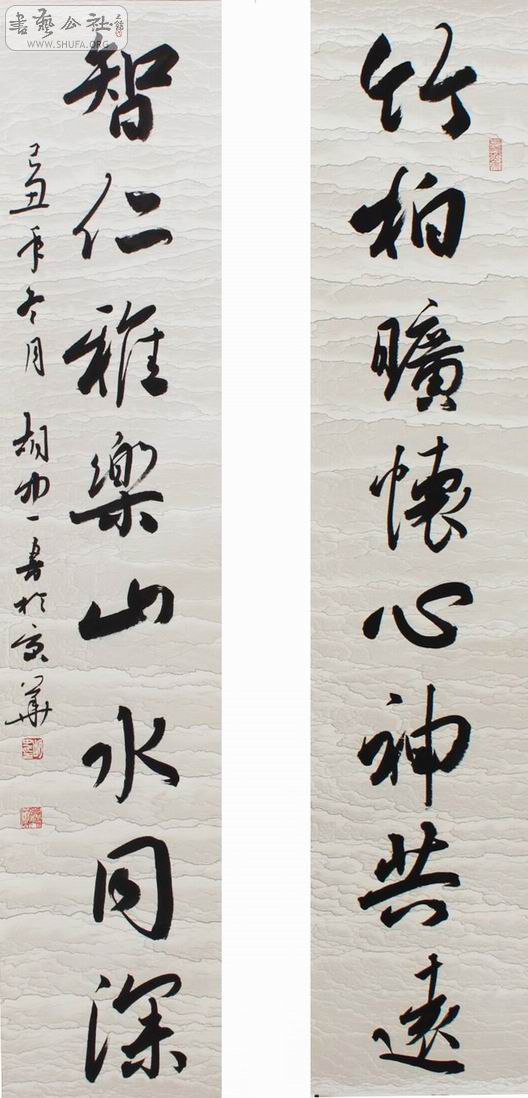 竹柏曠懷心神共遠
智仁雅樂山水同深
己丑年冬月 胡沖一書於京華
書藝公社
WWW.SHUFA.ORG